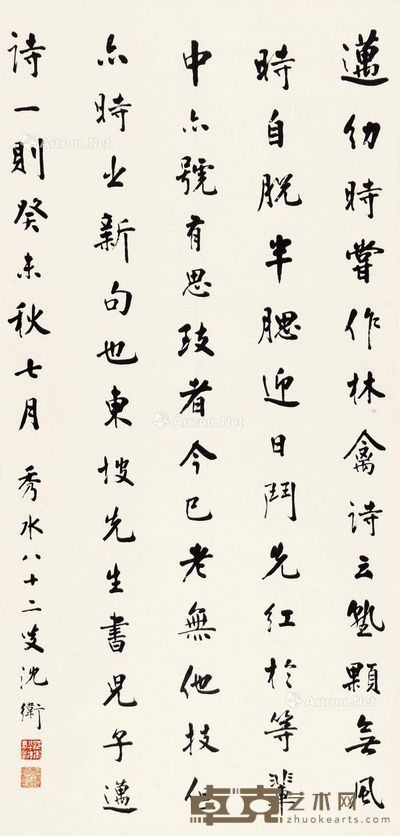 邁幼時嘗作林禽詩云墊顆無風
時自脫半腮迎日鬥先紅於等輩
中亦號有思致者今已老無他技但
亦時出新句也東坡先生書兒子邁
詩一則癸未秋七月 秀水八十二叟沈衛
Artron.Net
Artron.Net
Artron.Net
Artron.Net
卓克艺术网
www.zhuokearts.com